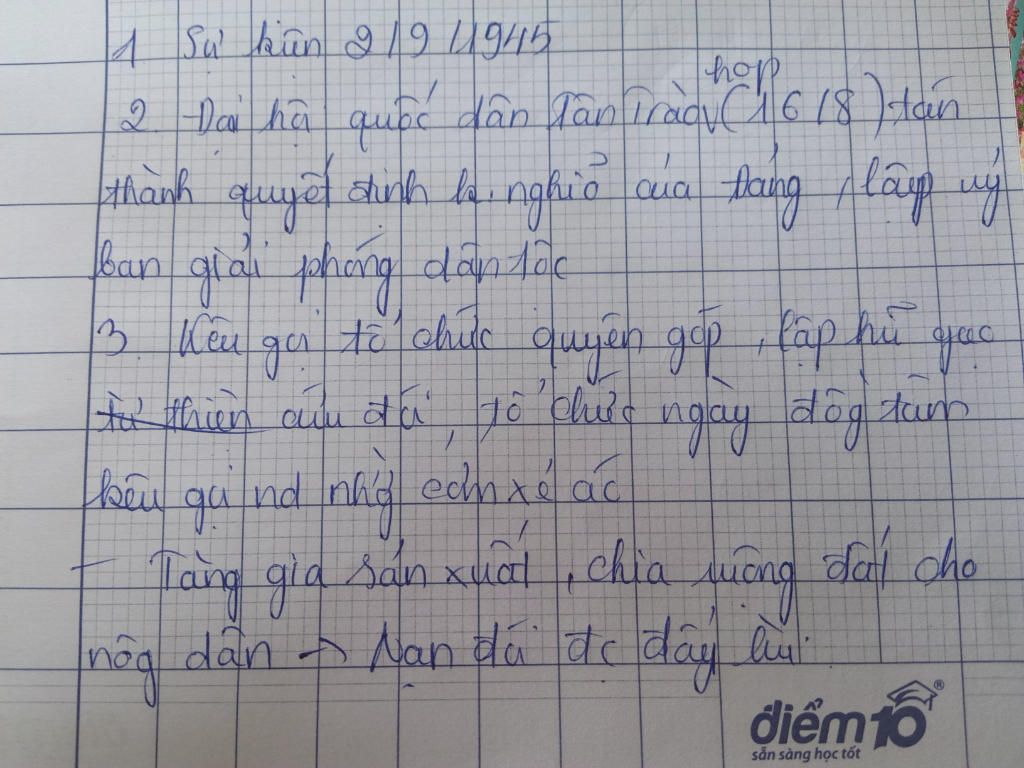 1 Sự kiện 2/9/1945
2. Đại hội quốc dân Tân Trào họp (16/8) tán
thành quyết định k. nghĩa của Đảng, lập uỷ
ban giải phóng dân tộc
3. Kêu gọi tổ chức quyên góp, lập hũ gạo
từ thiện cứu đói, tổ chức ngày đồg tâm
kêu gọi nd nhg cơm xẻ áo
- Tăng gia sản xuất, chia ruộng đất cho
nôg dân → Nạn đói đc đẩy lùi.
điểm 10®
sẵn sàng học tốt